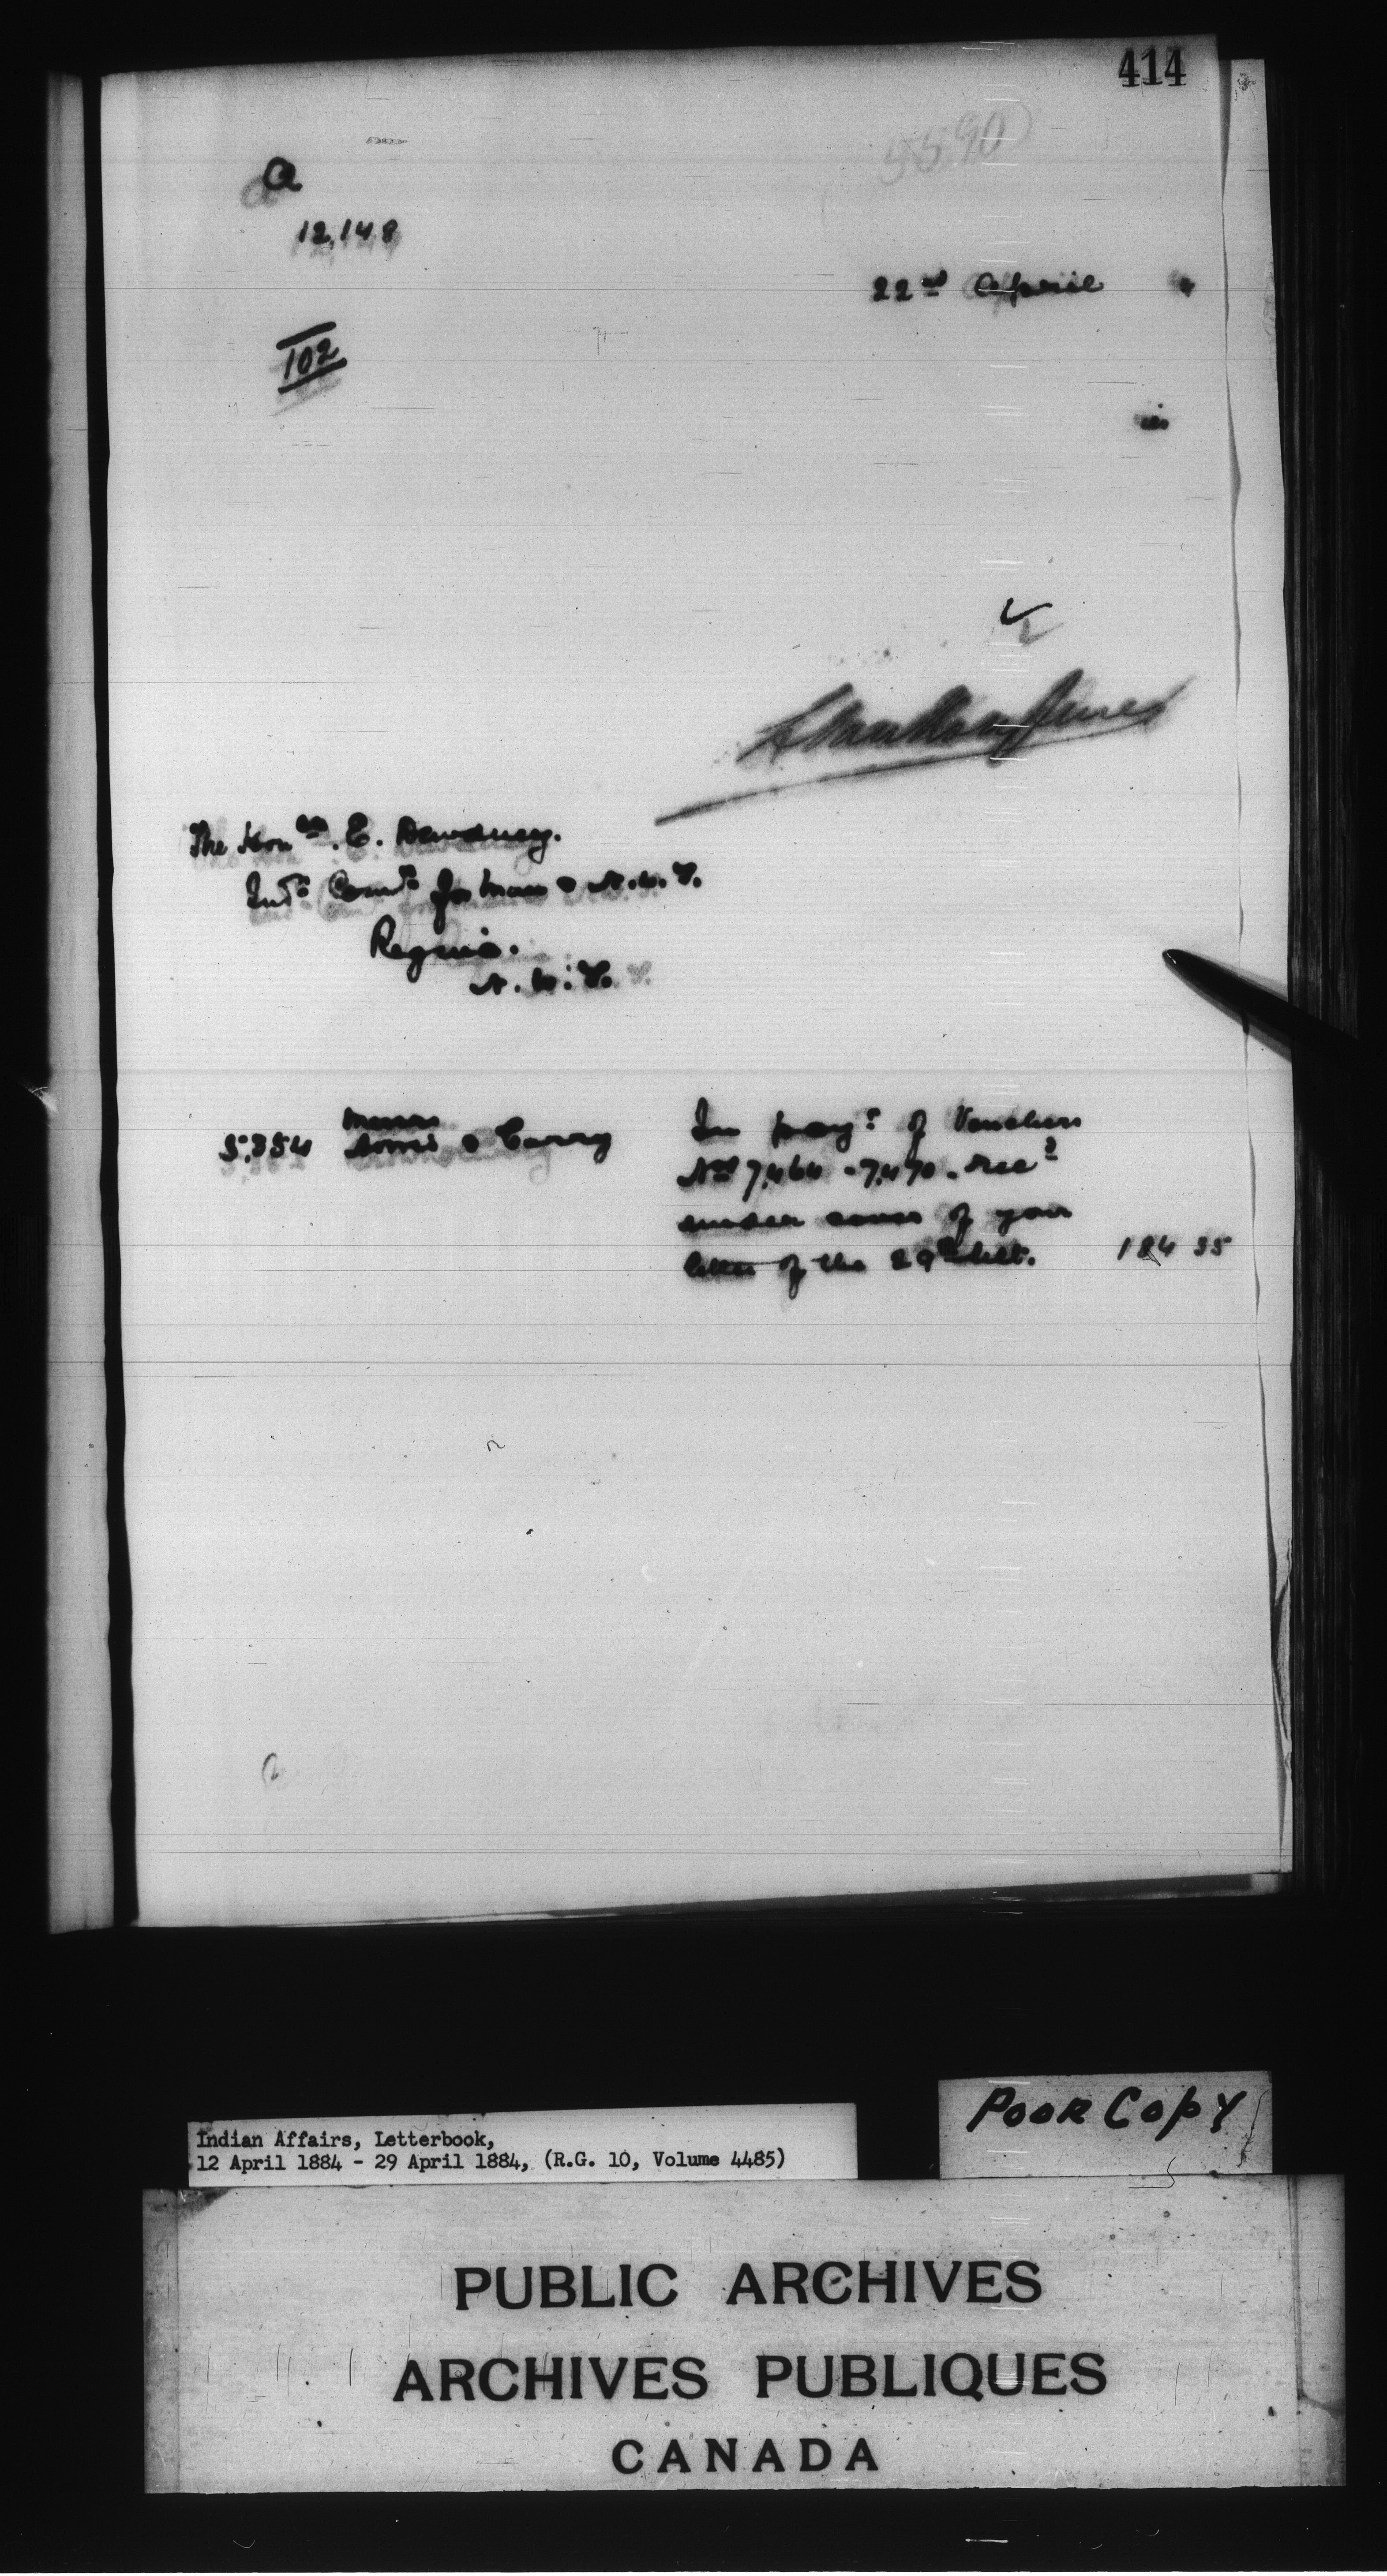 414
5590
a
12,148
22nd April 4
102
in
The Honble. E. Dewdney.
Indn Comr for Man & N.W.T.
Regina.
N.W.T.
5,354 Messrs & Curry
In payt of Vouchers
Nos 7,464 - 7,470. recd
under cover of your
letter of the 29th Ult. 184 35
Indian Affairs, Letterbook,
12 April 1884 - 29 April 1884, (R.G. 10, Volume 4485)
Poor Copy
PUBLIC ARCHIVES
ARCHIVES PUBLIQUES
CANADA